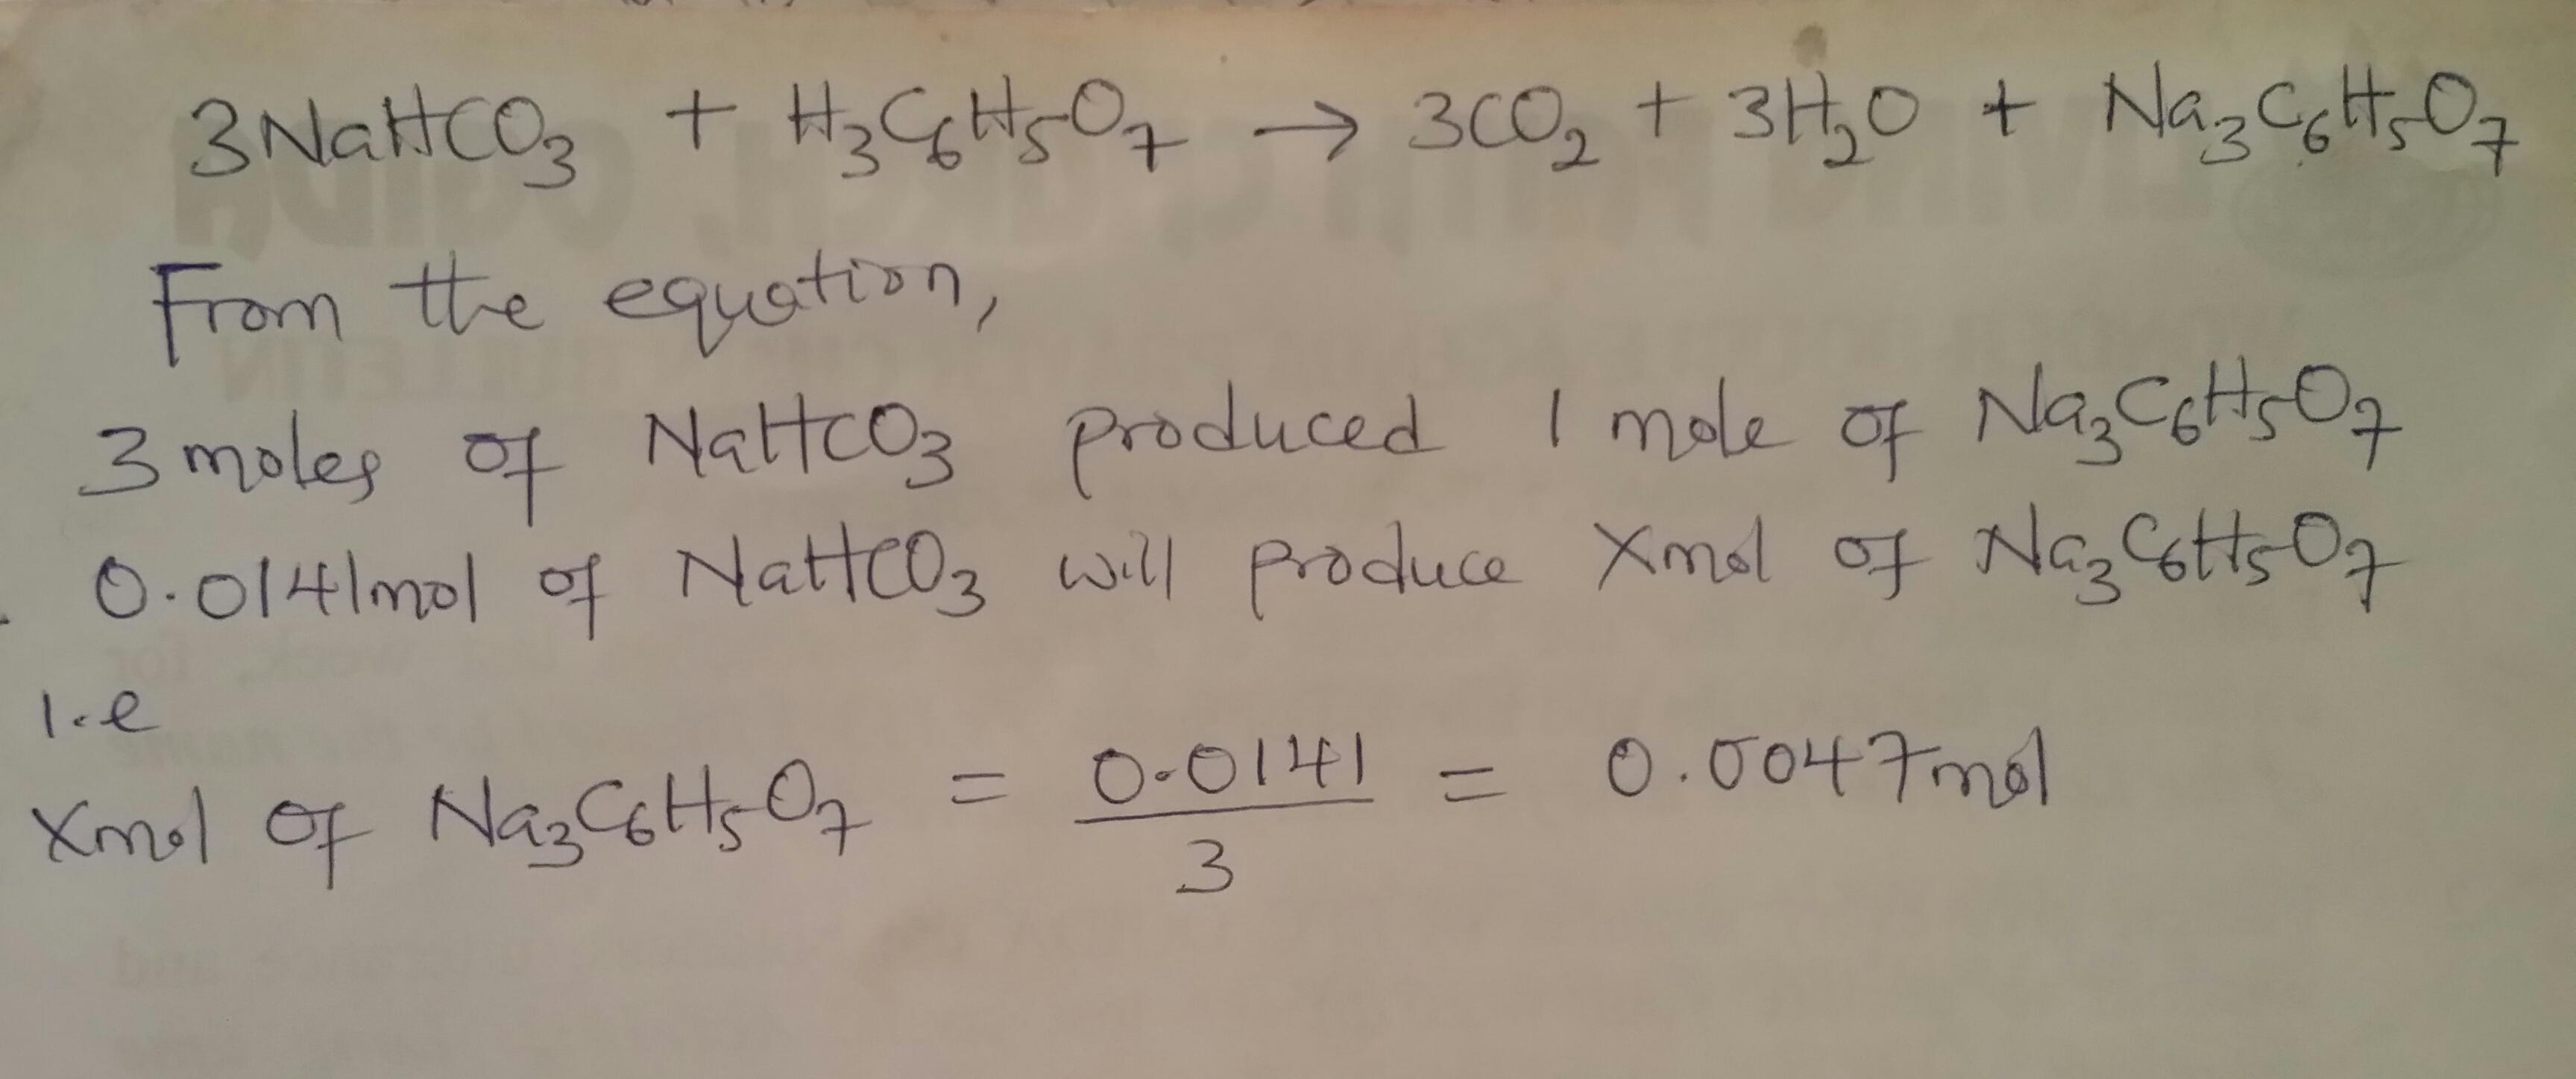 3NaHCO₃ + H₃C₆H₅O₇ → 3CO₂ + 3H₂O + Na₃C₆H₅O₇
From the equation,
3 moles of NaHCO₃ produced 1 mole of Na₃C₆H₅O₇
0.0141mol of NaHCO₃ will produce Xmol of Na₃C₆H₅O₇
I.e
Xmol of Na₃C₆H₅O₇ = 0.0141/3 = 0.0047mol